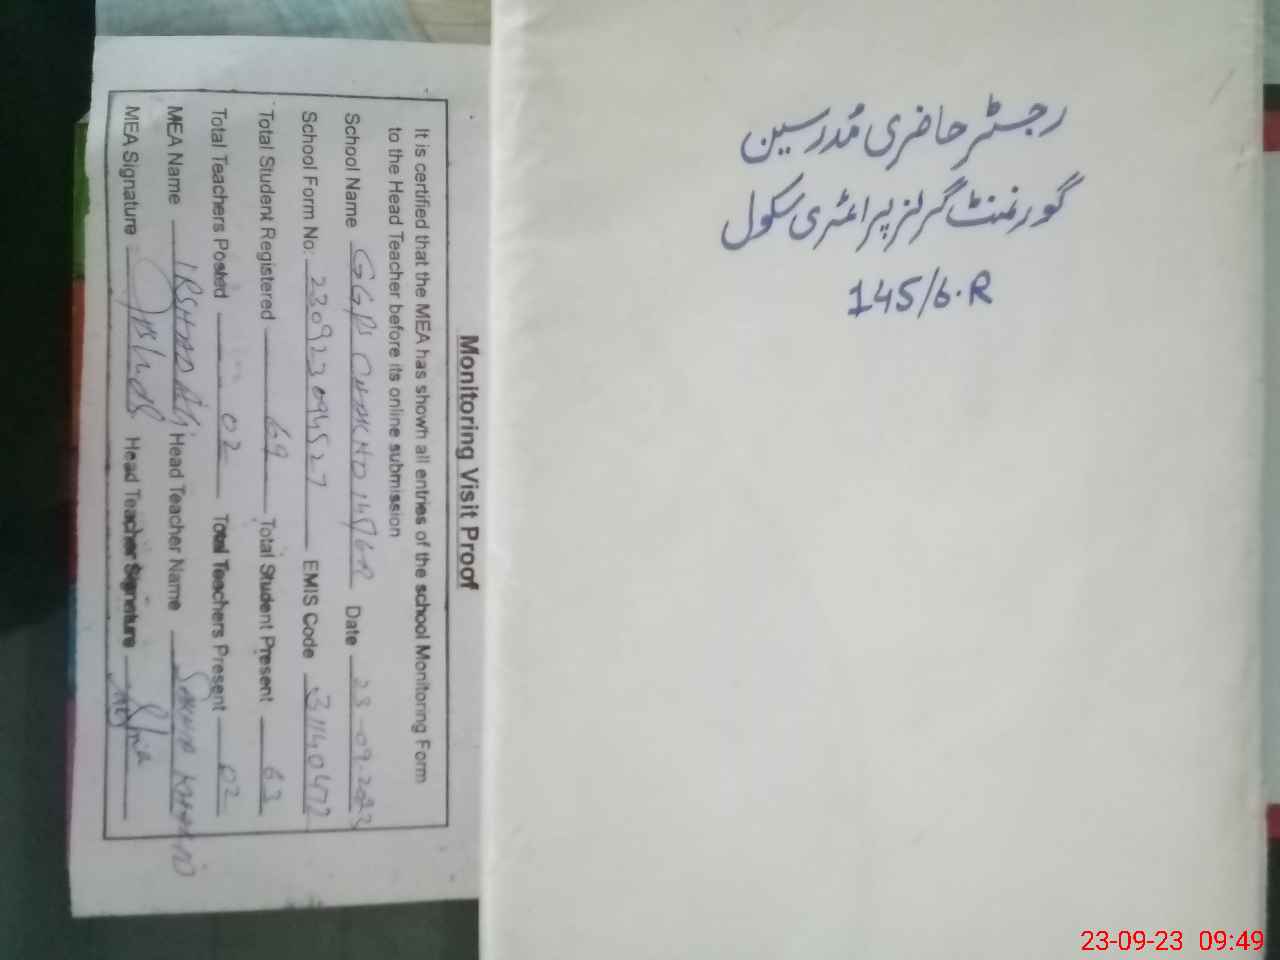 رجسٹر حاضری مُدرسین
گورنمنٹ گرلز پرائمری سکول
145/6.R
Monitoring Visit Proof
It is certified that the MEA has shown all entries of the school Monitoring Form
to the Head Teacher before its online submission
School Name GGPS CHAK NO 145/6R Date 23-09-2023
School Form No: 230923094527 EMIS Code 31140472
Total Student Registered 69 Total Student Present 63
Total Teachers Posted 02 Total Teachers Present 02
MEA Name IRSHAD ALI Head Teacher Name
MEA Signature Irshad Head Teacher Signature
23-09-23 09:49